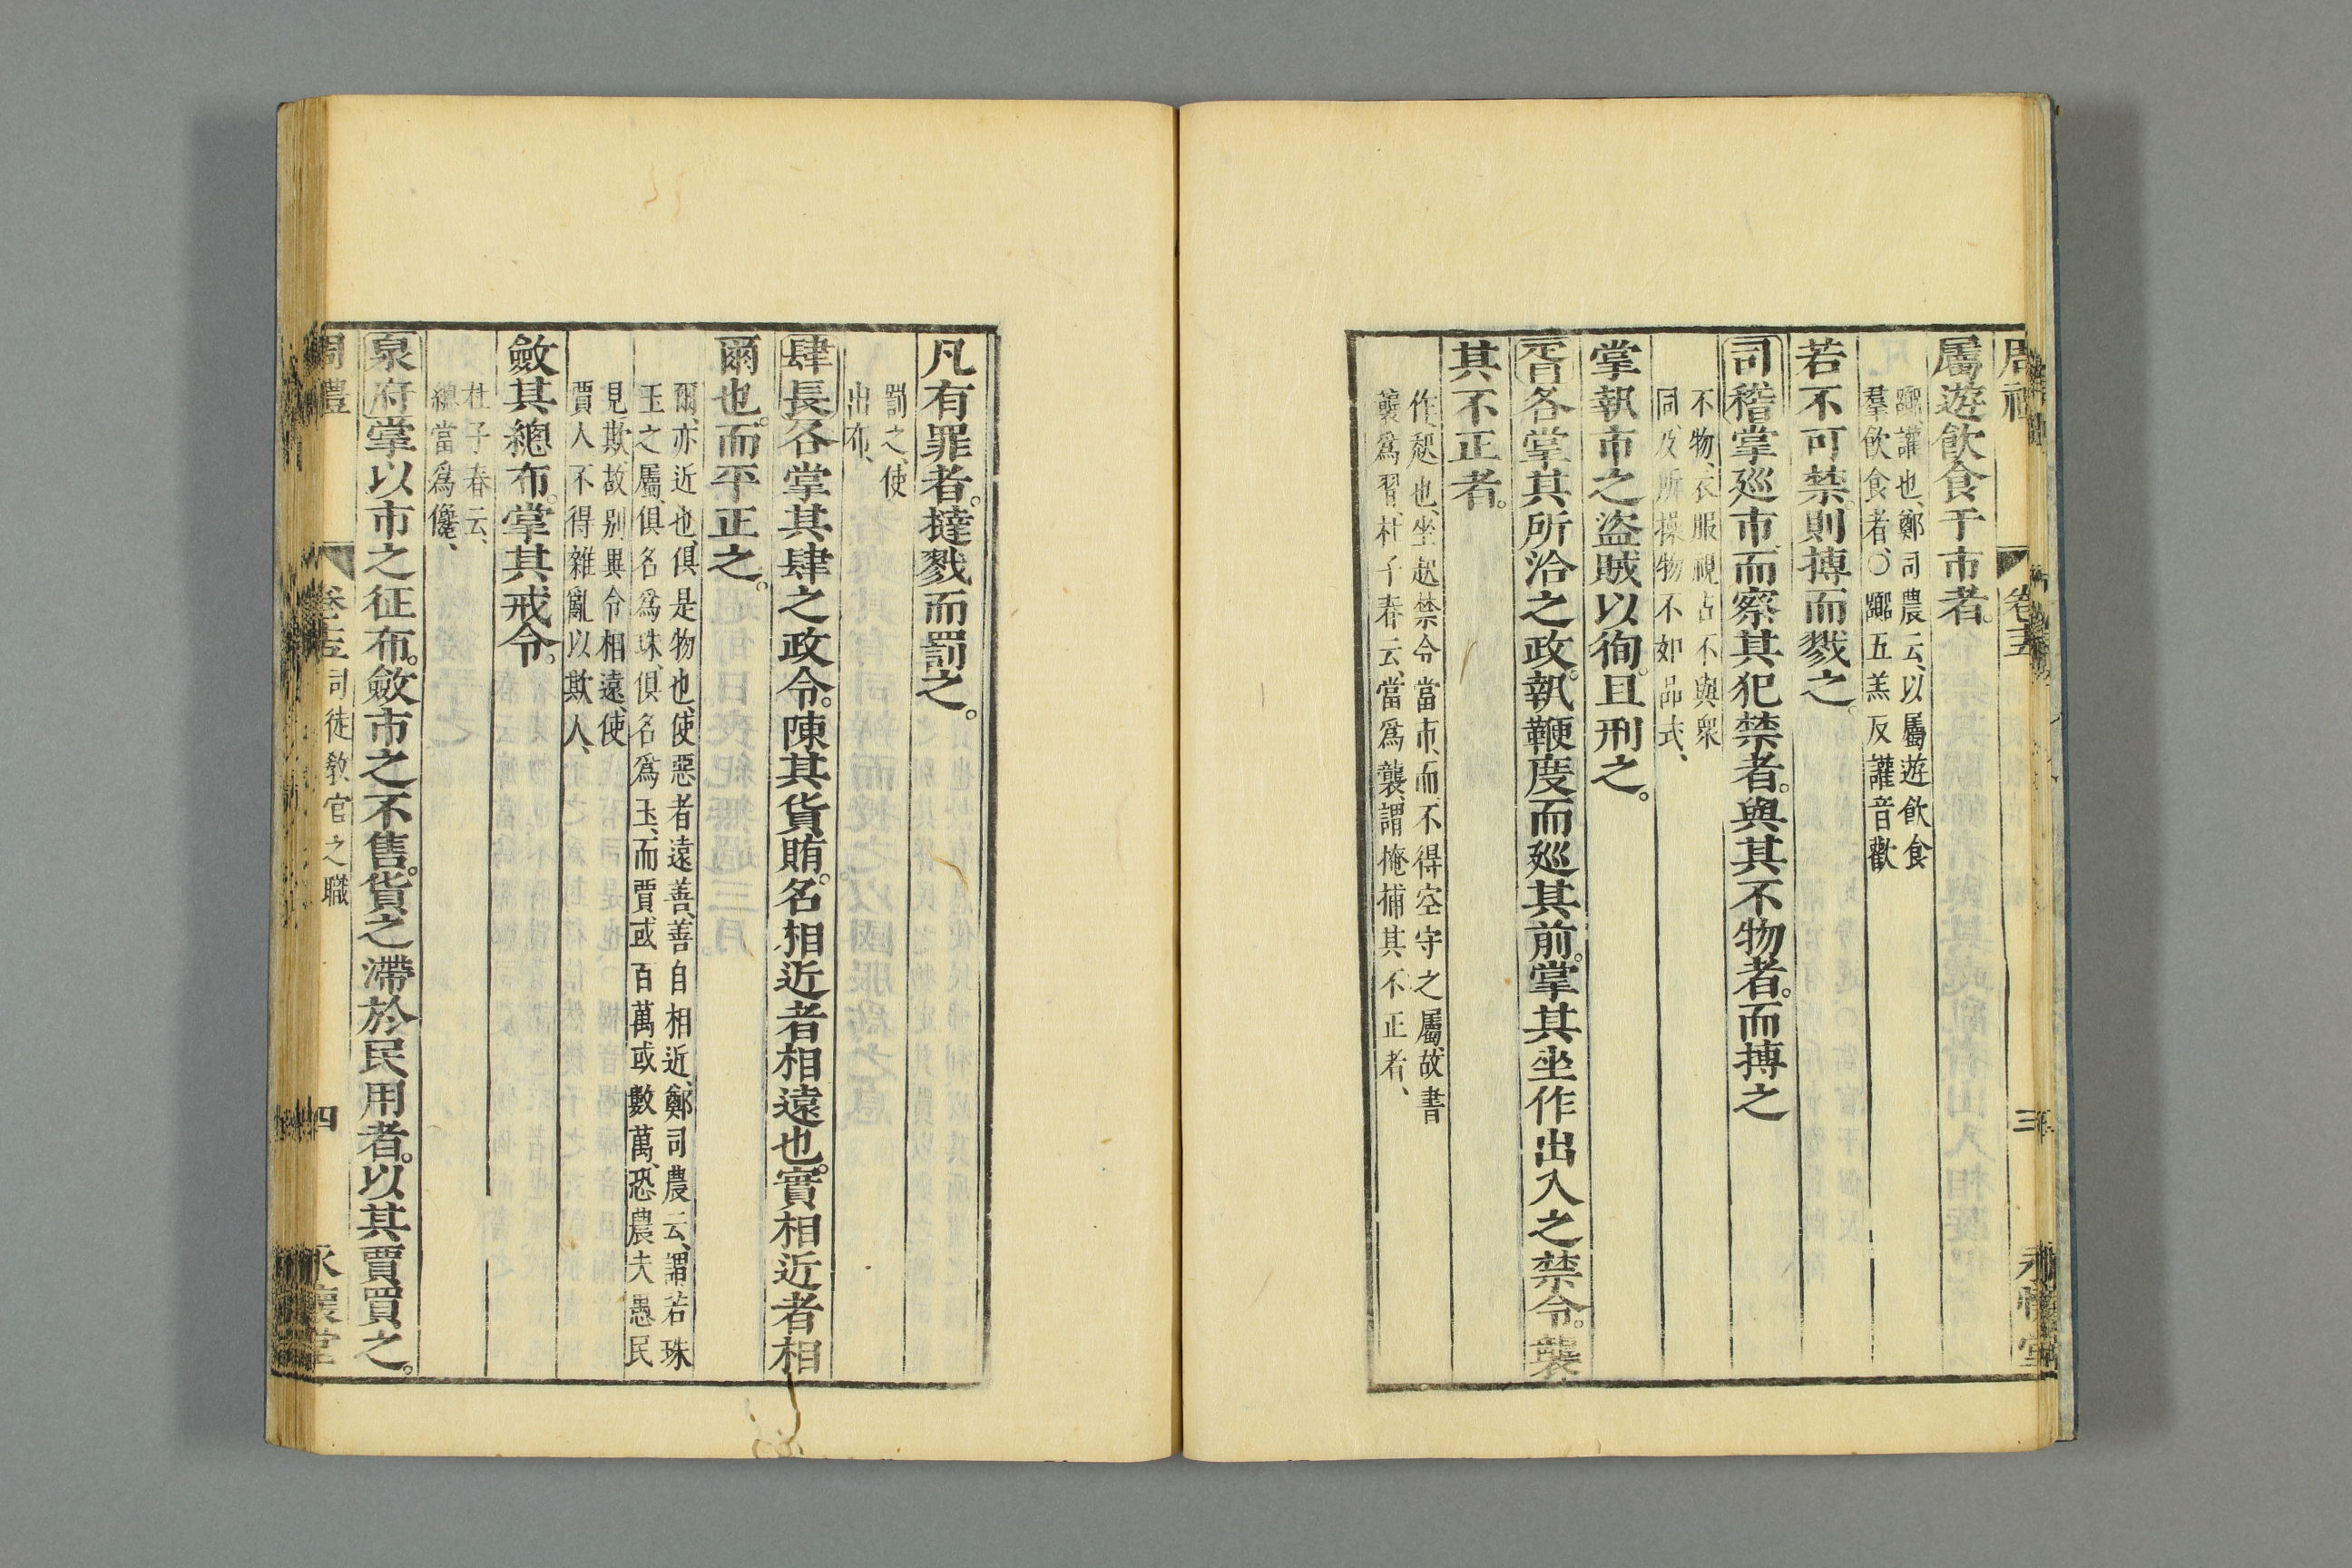 周禮 卷十五 三 永懷堂
屬遊飲食于市者。
嚻、讙也、鄭司農云、以屬遊飲食
羣飲食者、〇嚻五羔反讙音歡
若不可禁。則搏而戮之。
司稽掌廵市。而察其犯禁者。與其不物者。而搏之
不物、衣服視占不與衆
同、及所操物不如品式、
掌執市之盗賊以徇。且刑之。
胥各掌其所治之政。執鞭度而廵其前。掌其坐作出入之禁令。襲
其不正者。
作、起也、坐起禁令、當市、而不得空守之屬、故書
襲爲習、杜子春云、當爲襲、謂掩捕其不正者、
凡有罪者。撻戮而罰之。
罰之、使
出布、
肆長各掌其肆之政令。陳其貨賄。名相近者相遠也。實相近者相
爾也。而平正之。
爾、亦近也、俱是物也、使惡者遠善、善自相近、鄭司農云、謂若珠
玉之屬、俱名爲珠、俱名爲玉、而賈或百萬或數萬、恐農夫愚民
見欺、故别異令相遠、使
賈人不得雜亂以欺人、
斂其總布。掌其戒令。
杜子春云、
總當爲儳、
泉府掌以市之征布。斂市之不售。貨之滯於民用者。以其賈買之。
周禮 卷十五 司徒教官之職 四 永懷堂